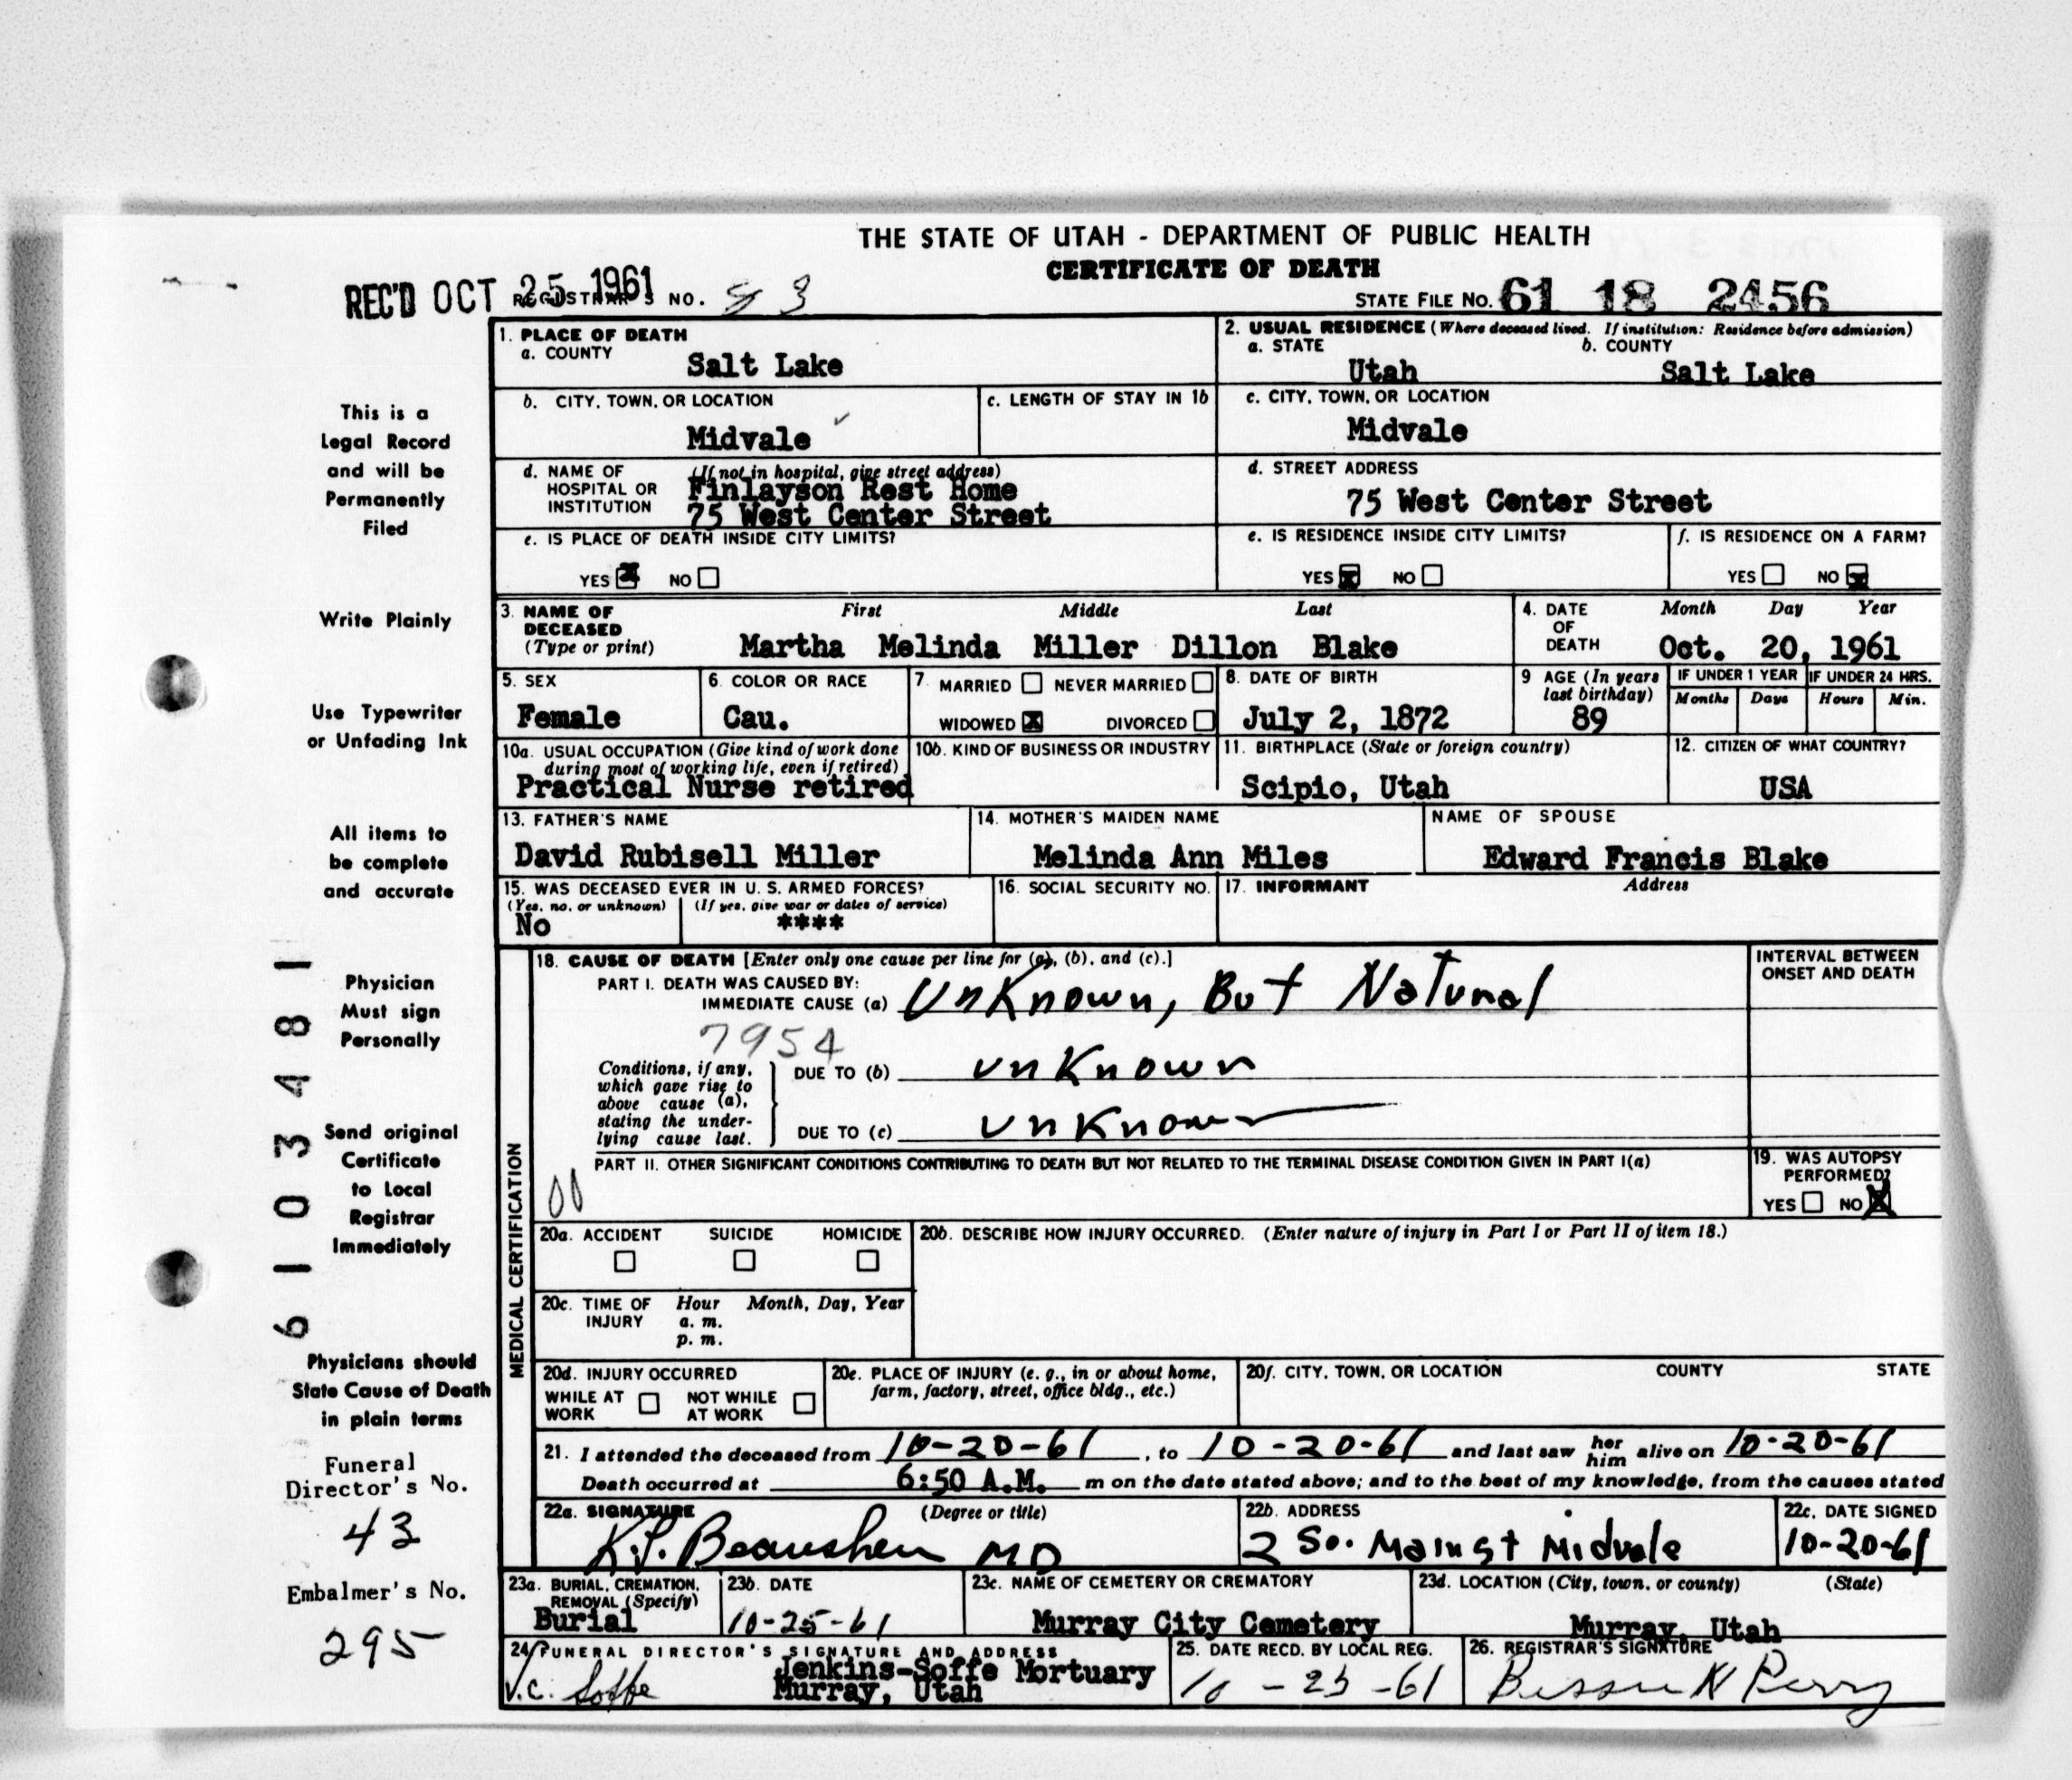 THE STATE OF UTAH - DEPARTMENT OF PUBLIC HEALTH
CERTIFICATE OF DEATH
REC'D OCT 25 1961 REGISTRAR'S NO. 3
STATE FILE NO. 61 18 2456
1. PLACE OF DEATH
a. COUNTY
Salt Lake
2. USUAL RESIDENCE (Where deceased lived. If institution: Residence before admission)
a. STATE b. COUNTY
Utah Salt Lake
b. CITY, TOWN, OR LOCATION
Midvale
c. LENGTH OF STAY IN 1b
c. CITY, TOWN, OR LOCATION
Midvale
d. NAME OF (If not in hospital, give street address)
HOSPITAL OR Finlayson Rest Home
INSTITUTION 75 West Center Street
d. STREET ADDRESS
75 West Center Street
e. IS PLACE OF DEATH INSIDE CITY LIMITS?
YES X NO
e. IS RESIDENCE INSIDE CITY LIMITS?
YES X NO
f. IS RESIDENCE ON A FARM?
YES NO X
3. NAME OF First Middle Last
DECEASED
(Type or print) Martha Melinda Miller Dillon Blake
4. DATE Month Day Year
OF
DEATH Oct. 20, 1961
5. SEX
Female
6. COLOR OR RACE
Cau.
7. MARRIED NEVER MARRIED
WIDOWED X DIVORCED
8. DATE OF BIRTH
July 2, 1872
9 AGE (In years
last birthday)
89
IF UNDER 1 YEAR IF UNDER 24 HRS.
Months Days Hours Min.
10a. USUAL OCCUPATION (Give kind of work done
during most of working life, even if retired)
Practical Nurse retired
10b. KIND OF BUSINESS OR INDUSTRY
11. BIRTHPLACE (State or foreign country)
Scipio, Utah
12. CITIZEN OF WHAT COUNTRY?
USA
13. FATHER'S NAME
David Rubisell Miller
14. MOTHER'S MAIDEN NAME
Melinda Ann Miles
NAME OF SPOUSE
Edward Francis Blake
15. WAS DECEASED EVER IN U. S. ARMED FORCES?
(Yes, no, or unknown) (If yes, give war or dates of service)
No ****
16. SOCIAL SECURITY NO.
17. INFORMANT Address
MEDICAL CERTIFICATION
18. CAUSE OF DEATH [Enter only one cause per line for (a), (b), and (c).]
PART I. DEATH WAS CAUSED BY:
IMMEDIATE CAUSE (a) Unknown, But Natural
7954
INTERVAL BETWEEN
ONSET AND DEATH
Conditions, if any,
which gave rise to
above cause (a),
stating the under-
lying cause last.
DUE TO (b) unknown
DUE TO (c) unknown
PART II. OTHER SIGNIFICANT CONDITIONS CONTRIBUTING TO DEATH BUT NOT RELATED TO THE TERMINAL DISEASE CONDITION GIVEN IN PART I(a)
00
19. WAS AUTOPSY
PERFORMED?
YES NO X
20a. ACCIDENT SUICIDE HOMICIDE
20b. DESCRIBE HOW INJURY OCCURRED. (Enter nature of injury in Part I or Part II of item 18.)
20c. TIME OF Hour Month, Day, Year
INJURY a. m.
p. m.
20d. INJURY OCCURRED
WHILE AT NOT WHILE
WORK AT WORK
20e. PLACE OF INJURY (e. g., in or about home,
farm, factory, street, office bldg., etc.)
20f. CITY, TOWN, OR LOCATION COUNTY STATE
21. I attended the deceased from 10-20-61, to 10-20-61 and last saw her him alive on 10-20-61
Death occurred at 6:50 A.M. m on the date stated above; and to the best of my knowledge, from the causes stated
22a. SIGNATURE (Degree or title)
MD
22b. ADDRESS
2 So. Main St Midvale
22c. DATE SIGNED
10-20-61
23a. BURIAL, CREMATION,
REMOVAL (Specify)
Burial
23b. DATE
10-25-61
23c. NAME OF CEMETERY OR CREMATORY
Murray City Cemetery
23d. LOCATION (City, town, or county) (State)
Murray, Utah
24 FUNERAL DIRECTOR'S SIGNATURE AND ADDRESS
V.C. Soffe Jenkins-Soffe Mortuary
Murray, Utah
25. DATE RECD. BY LOCAL REG.
10-25-61
26. REGISTRAR'S SIGNATURE
Bessie N Perry
This is a
Legal Record
and will be
Permanently
Filed
Write Plainly
Use Typewriter
or Unfading Ink
All items to
be complete
and accurate
Physician
Must sign
Personally
Send original
Certificate
to Local
Registrar
Immediately
Physicians should
State Cause of Death
in plain terms
Funeral
Director's No.
43
Embalmer's No.
295
6103481